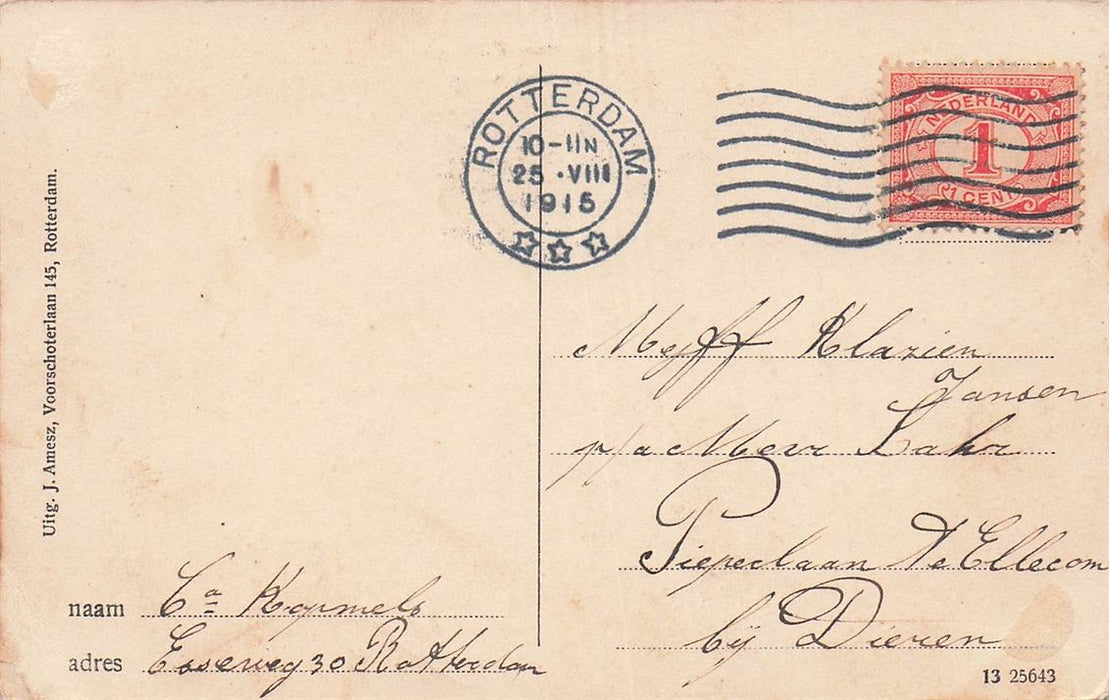 ROTTERDAM
10-11N
25 · VIII
1915
NEDERLAND
1
1 CENT
Uitg. J. Amesz, Voorschoterlaan 145, Rotterdam.
Mejff Klazien
Jansen
p/a Mevr Lahr
Piepeclaan Te Ellecom
bij Dieren
naam Ca Kopmels
adres Esseweg 30 Rotterdam
13 25643